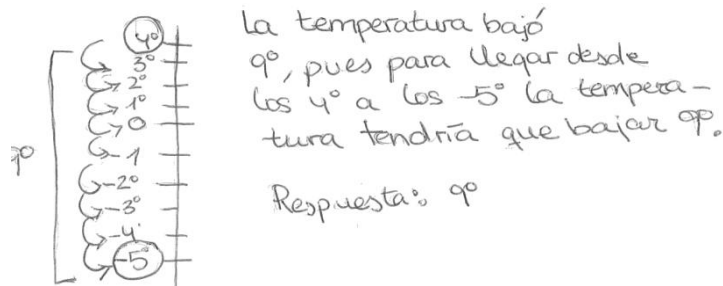 4°
3°
2°
1°
0
-1
-2°
-3°
-4°
-5°
9°
La temperatura bajó
9°, pues para llegar desde
los 4° a los -5° la tempera-
tura tendría que bajar 9°.
Respuesta: 9°